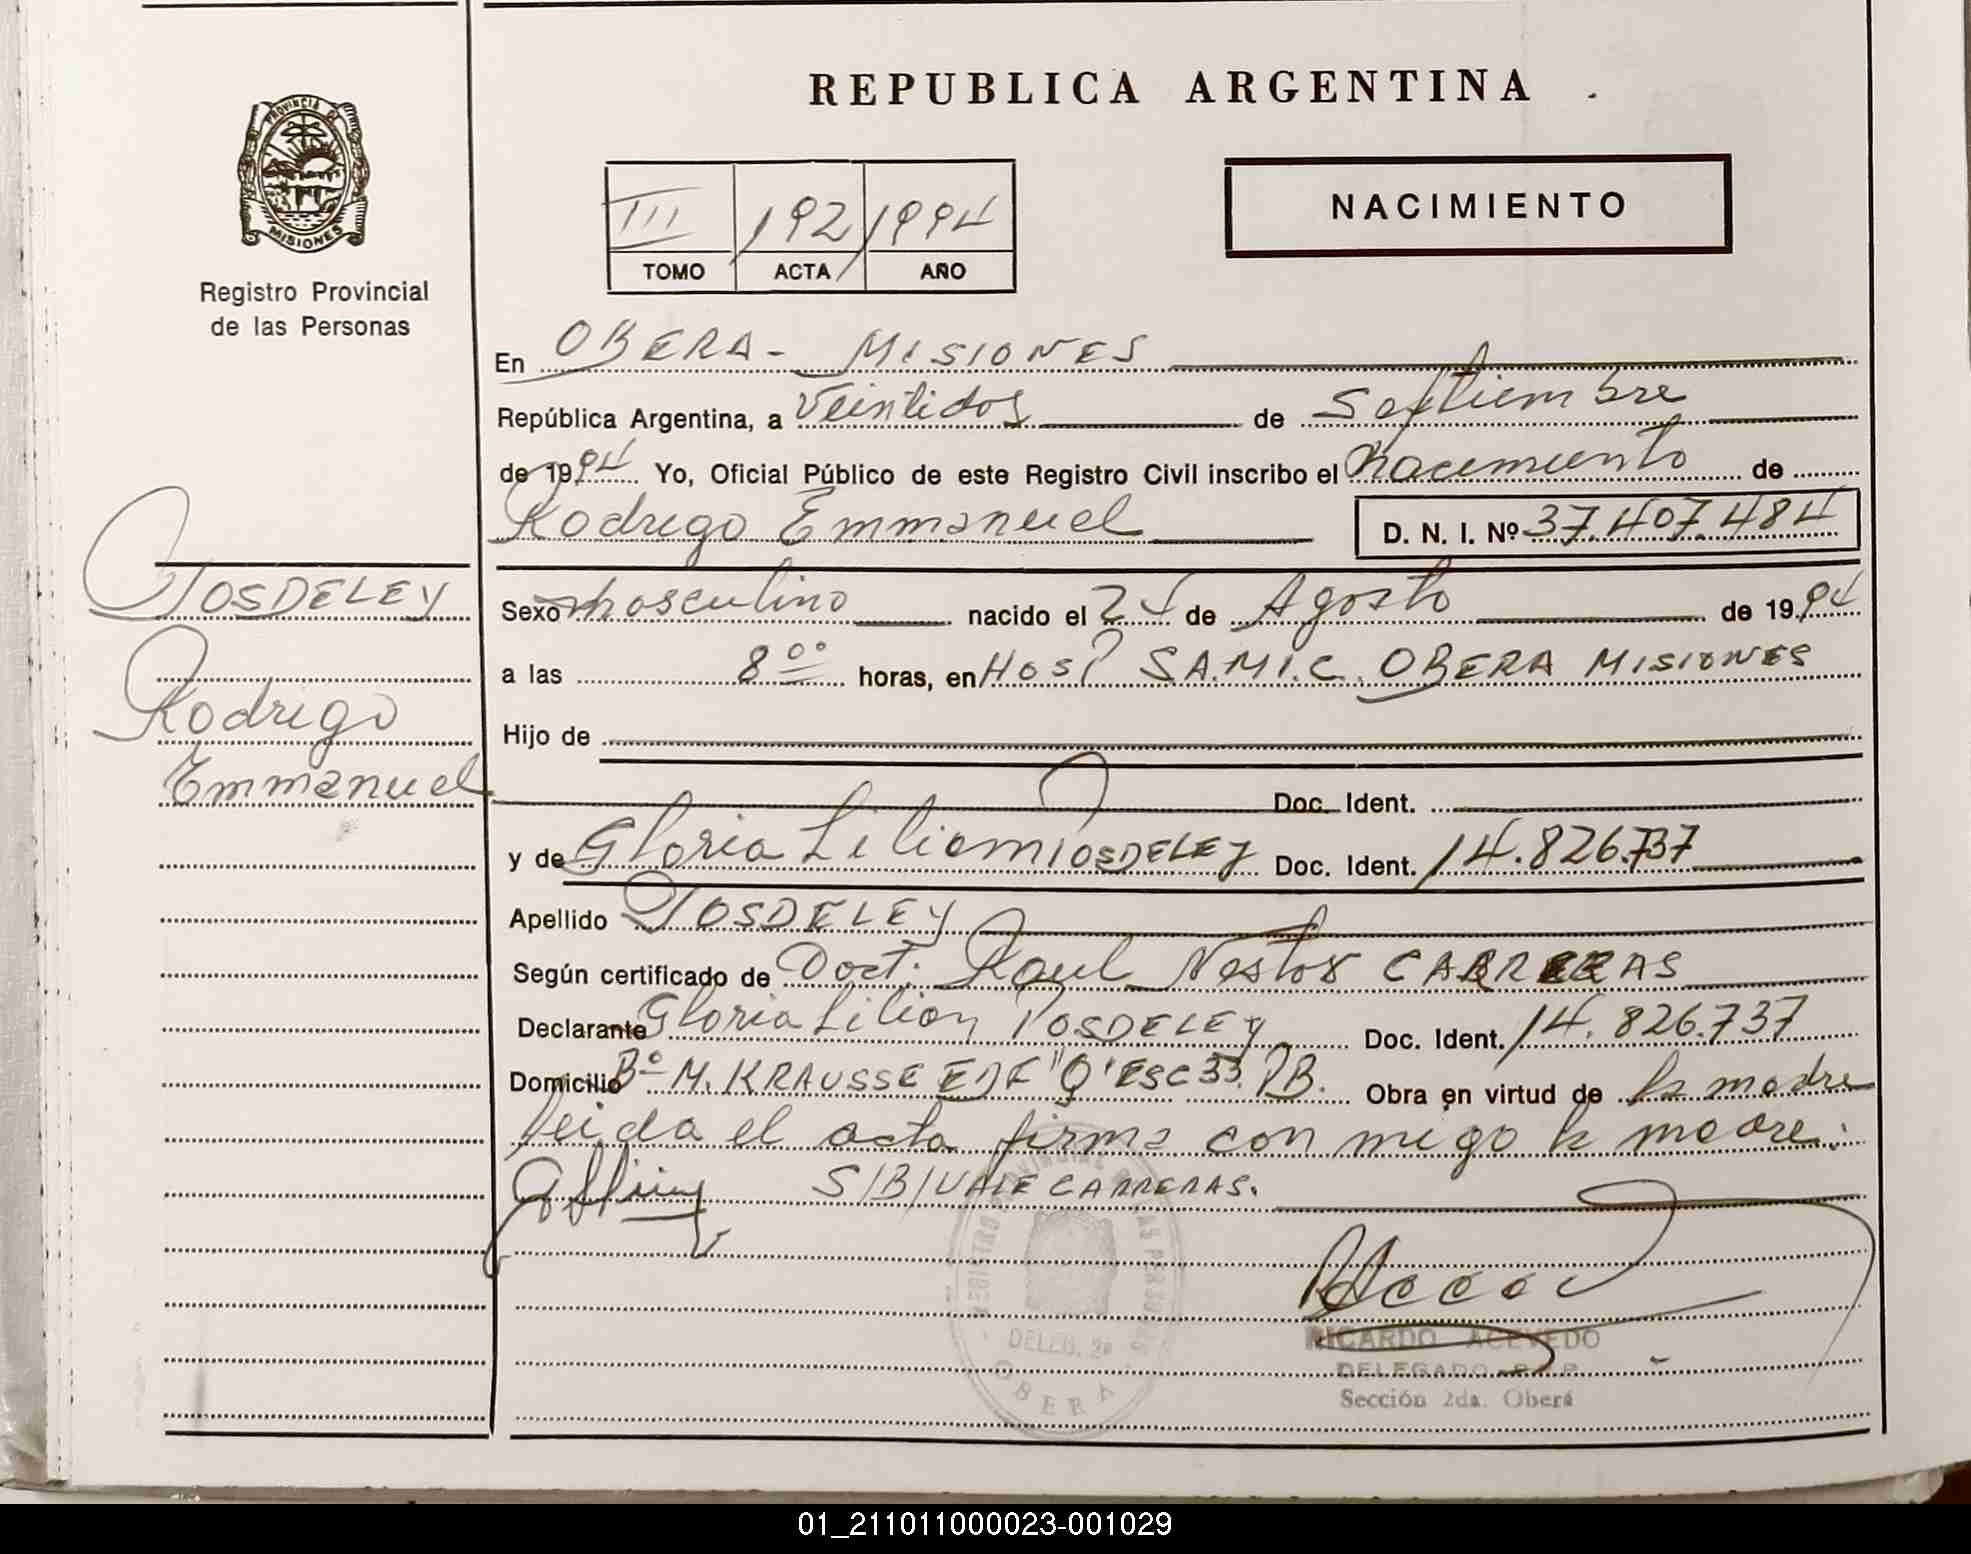 REPUBLICA ARGENTINA
PROVINCIA DE
MISIONES
Registro Provincial
de las Personas
III 192 1994
TOMO ACTA AÑO
NACIMIENTO
En OBERA - MISIONES
República Argentina, a Veintidos de Septiembre
de 1994 Yo, Oficial Público de este Registro Civil inscribo el Nacimiento de
Rodrigo Emmanuel D. N. I. Nº 37.407.484
POSDELEY
Rodrigo
Emmanuel
Sexo Masculino nacido el 24 de Agosto de 1994
a las 8 00 horas, en HOSP SA.M.I.C. OBERA MISIONES
Hijo de
Doc. Ident.
y de Gloria Lilian POSDELEY Doc. Ident. 14.826.737
Apellido POSDELEY
Según certificado de Doct. Raul Nestor CARRERAS
Declarante Gloria Lilian POSDELEY Doc. Ident. 14.826.737
Domicilio Bº M. KRAUSSE EDF "Q" ESC 33. PB. Obra en virtud de la madre
leida el acta firma con migo la madre.
S/B/VALE CARRERAS.
DELEG. 2ª
OBERA
RICARDO ACEVEDO
DELEGADO R.P.P.
Sección 2da. Oberá
01_211011000023-001029